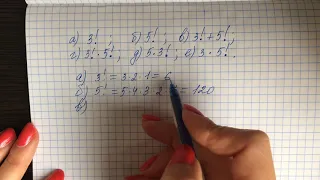 а) 3! ; б) 5! ; в) 3! + 5! ;
г) 3! · 5! ; д) 5 · 3! ; е) 3 · 5! .
а) 3! = 3·2·1 = 6
б) 5! = 5·4·3·2·1 = 120
в)